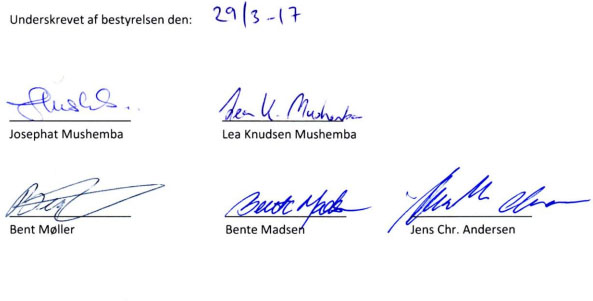 Underskrevet af bestyrelsen den: 29/3-17
Lea K. Mushemba
Josephat Mushemba Lea Knudsen Mushemba
Bente Madsen
Bent Møller Bente Madsen Jens Chr. Andersen